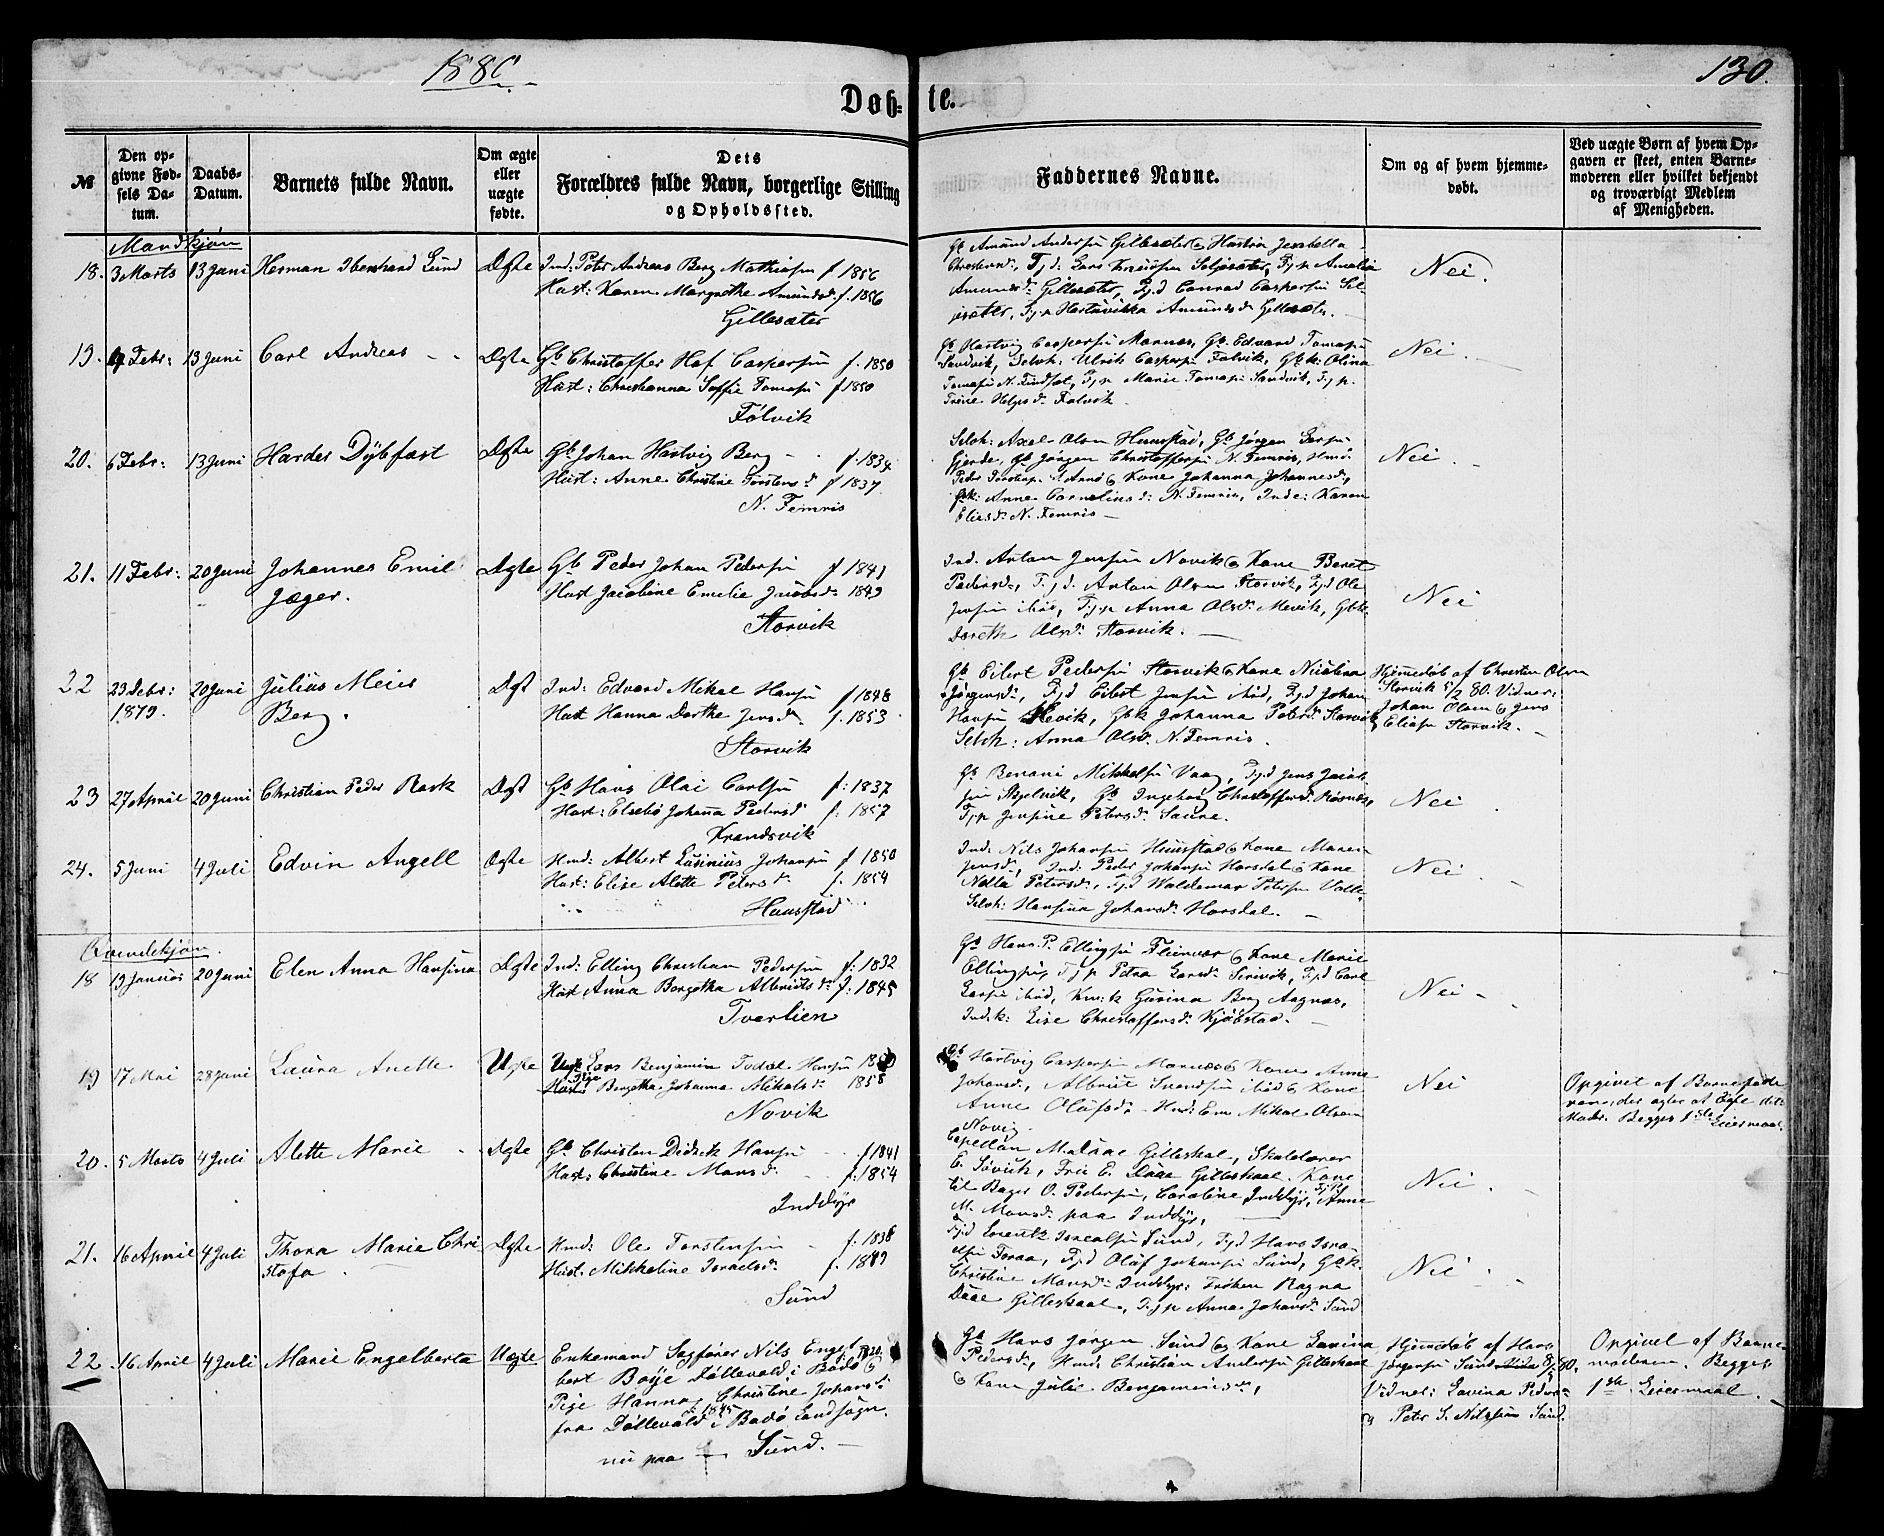 1880.
130.
Døb- te.
№
Den opgivne Fødsels Datum.
Daabs-Datum.
Barnets fulde Navn.
Om ægte eller uægte fødte.
Dets Forældres fulde Navn, borgerlige Stilling og Opholdssted.
Faddernes Navne.
Om og af hvem hjemmedøbt.
Ved uægte Børn af hvem Opgaven er skeet, enten Barnemoderen eller hvilket bekjendt og troværdigt Medlem af Menigheden.
Mandkjøn
18. 3 Marts 13 Juni Herman Sund Ægte Ind: Peter Andreas Berg Mathiasen f 1856
Hust: Karen Margrethe Amundsd. f. 1856
Gillesæter
Gb Amund Andersen Gillesæter & Hustru
Amunds d. Gillesæter, Conrad Caspersen
Amunds d. Gillesæter.
Nei.
19. Febr: 13 Juni Carl Andreas Ægte Gb Christoffer Caspersen f. 1850
Hust: Christianna Soffie f 1850
Følvik
Gb Hartvig Caspersen Marnæs, Gb. Edvard
Sandvik, Selvh: Ulrik Caspersen Følvik, Gbk: Olina
Marie Sandvik, Tj. p.
Trine Følvik.
Nei.
20. 6 Febr: 13 Juni Harder Dybfæst Ægte Gb. Johan Hartvig Berg f. 1834
Hust: Anne Christine Torstens d. f 1837
N. Femris
Selvh: Axel Olsen Hunstad, Gb Jørgen
Gjerde, Gb Jørgen Christoffersen N. Femris,
Peder & Kone Johanna Johannesd.,
Gbk: Anne Cornelius d. N. Femris, Inde: Karen
Elias d. N. Femris
Nei.
21. 11 Febr: 20 Juni Johannes Emil Ægte Gb Peder Johan Pedersen f 1841
Jæger. Hust Jacobine Emelie Jacobsd. 1849
Storvik
Ind. Anton Jensen Novik & Kone Beret
Pedersd., T. j. d. Anton Olsen Storvik, Tj. d Ole
Jensen ibid, Tj. p Anna Olsd. Mevik, Gbk.
Doreth Olsd. Storvik.
Nei
22 23 Debr: 20 Juni Julius Meier Ægt Ind: Edvard Mikal Hansen f 1848
1879. Berg. Hust Hanna Dorthe Jensd. f. 1853
Storvik
Gb Eilert Pedersen Storvik & Kone Nicolina
Jørgensd., Tj. d Eilert Jensen ibid, Tj. d Johan
Hansen Mevik, Gbk Johanna Petersd. Storvik
Selvh: Anna Olsd. N. Femris.
Hjemmedøb af Christen Olsen
Storvik 5/2 80. Vidner:
Johan Olsen & Jens
Eliasen Storvik.
23 27 April 20 Juni Christian Peder Rask Ægt Gb Hans Olai Carlsen f: 1837
Hust: Elsebe Johanna Pedersd. f: 1857
Krandsvik
Gb Benoni Mikkelsen Vaag, Tj. d Jens Jacobsen
Skjelvik, Gb Ingeborg Christoffersd. Røsnæs,
Tj. p Jensine Petersd. Saura.
Nei
24. 5 Juni 4 Juli Edvin Angell Ægte Hmd: Albert Johansen f 1850
Hust: Elise Alette Peters d. f. 1854
Hunstad
Ind: Nils Johansen Hunstad & Kone Maren
Jensd., Ind: Peder Johansen Horsdal & Kone
Petersd., Tj. d Waldemar Petersen Valle,
Selvh: Hansina Johansd. Horsdal.
Nei
Qvindekjøn.
18 19 Januar 20 Juni Elen Anna Hansina Ægte Ind: Elling Christian Pedersen f: 1832
Hust Anna Bergetha Albrigts d. f: 1845
Tverlien
Gb Hans P. Ellingsen Fleinvær & Kone Marie
Ellingsen, Tj. p Petra Larsd. Tj. d Carl
Larsen ibid, Gurina Berg Aagnæs,
Ind. k: Lise Christoffersd. Kjøbstad.
Nei
19 17 Mai 28 Juni Laura Anette Uægte Ungk Lars Benjamin Hansen
Pige Bergetha Johanna Mikals d. 1858
Novik
Gb Hartvig Caspersen Marnæs & Kone Anne
Johansd., Albrigt Svendsen ibid & Kone
Anne Olufsd. Hmd: Em. Mikal Olsen
Novig.
Nei
Opgivet af Barnefaderen,
der agter at Ægte dets
Moder. Begges 1ste Leiermaal.
20. 5 Marts 4 Juli Alette Marie Ægte Gb Christen Didrik Hansen f 1841
Hust: Christine Mons d. f: 1854
Inddyr
Capellan M. Daae Gilleskal, Skolelærer
E. Søvik, Frk E. Daae Gilleskaal, Kone
til Bager O. Pedersen, Caroline Inddyr, Tj. p. Anne
M. Monsd. paa Inddyr.
Nei
21. 16 April 4 Juli Thora Marie Christofa Ægte Hmd: Ole Torstensen f. 1838
Hust. Mikkeline Israelsd. f. 1849
Sund
Tj. d Lorentz Israelsen Sund, Tj. d Hans Israelsen
Foraa, Tj. d Oluf Johansen Sund, Gbk.
Christine Monsd. Inddyr: Frøken Ragna
Daae Gilleskaal, Tj. p Anna Johansd. Sund
Nei
22 16 April 4 Juli Marie Engelberta Uægte Enkemand Sagfører Nils Engelbert
Boye i Bodø &
Pige Hanna Christine Johansd. f. 1845
fra i Bodø Landsogn.
nu paa Sund.
Gb Hans Jørgen Sund & Kone Lavina
Pedersd., Hmd. Christian Andersen Gilleskaal
& Kone Julie Benjaminsd.,
Hjemmedøb af Hans
Jørgensen Sund 80.
Vidner: Lavina Peders d.
og Peter S. Nilssen Sund.
Opgivet af Barnemoderen.
Begges
1ste Leiermaal.